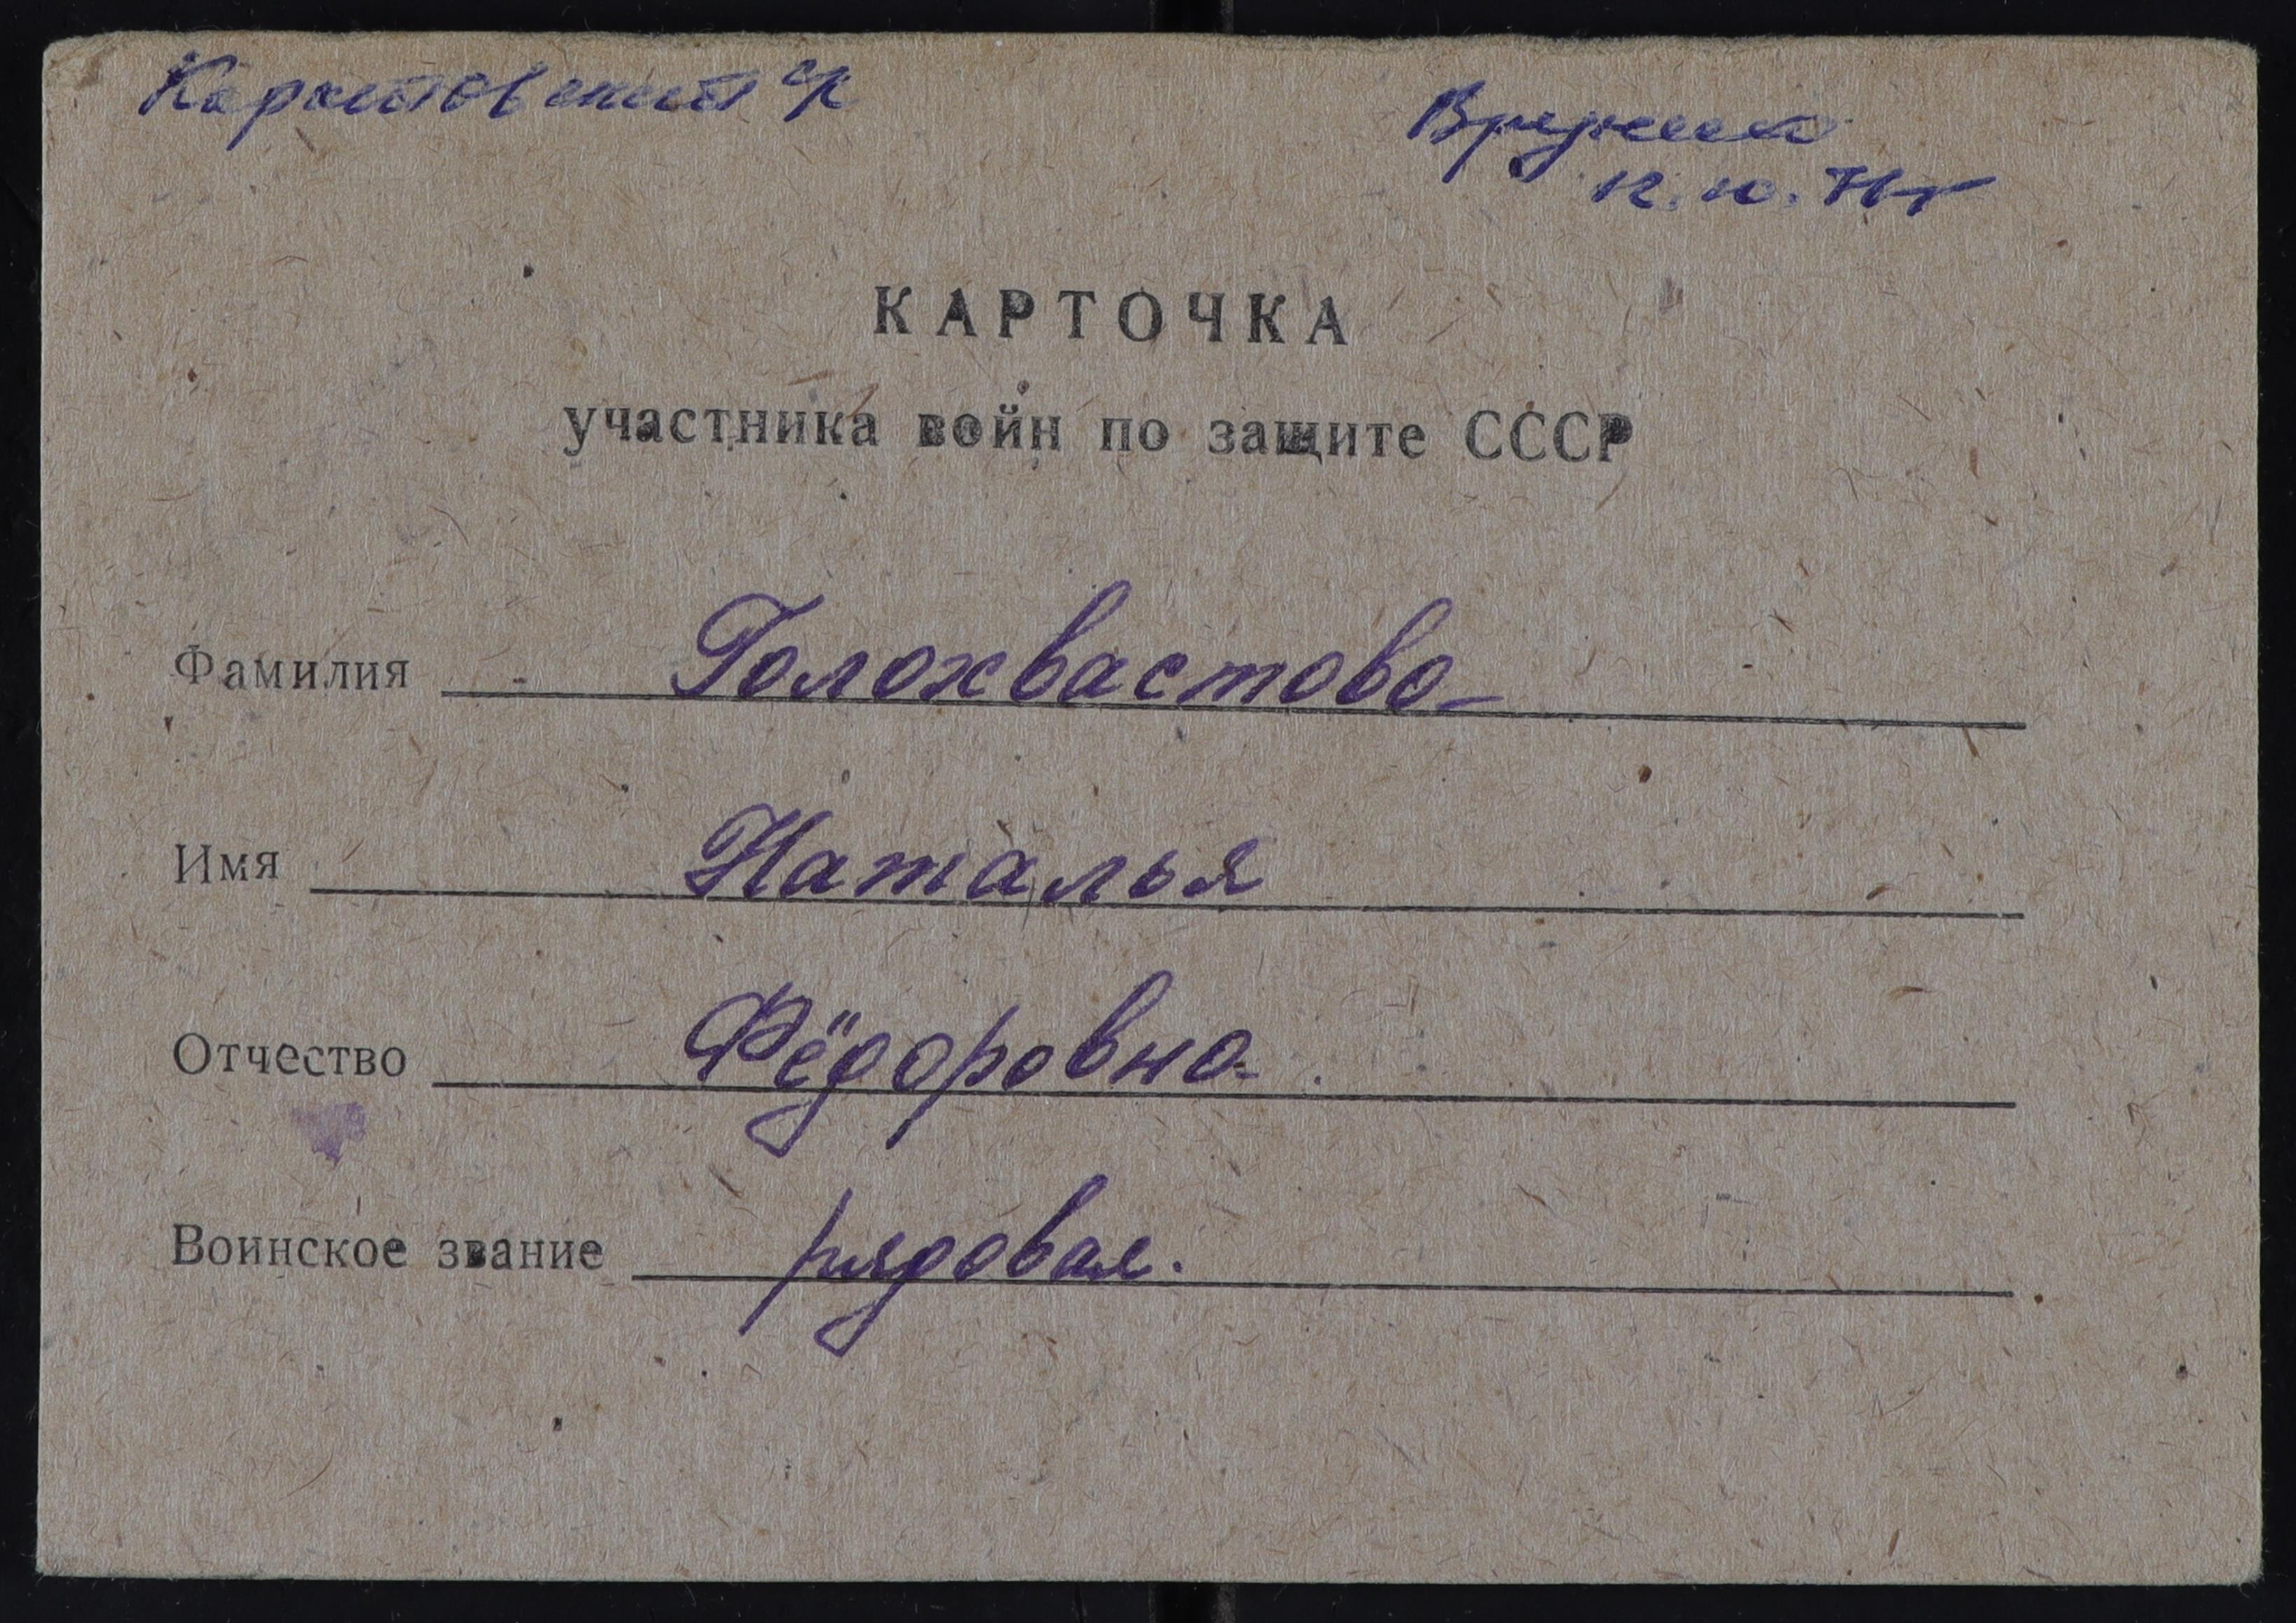 Вручено
12.10.71г
КАРТОЧКА
участника войн по защите СССР
Фамилия Голохвастова
Имя Наталья
Отчество Фёдоровна
Воинское звание рядовая.